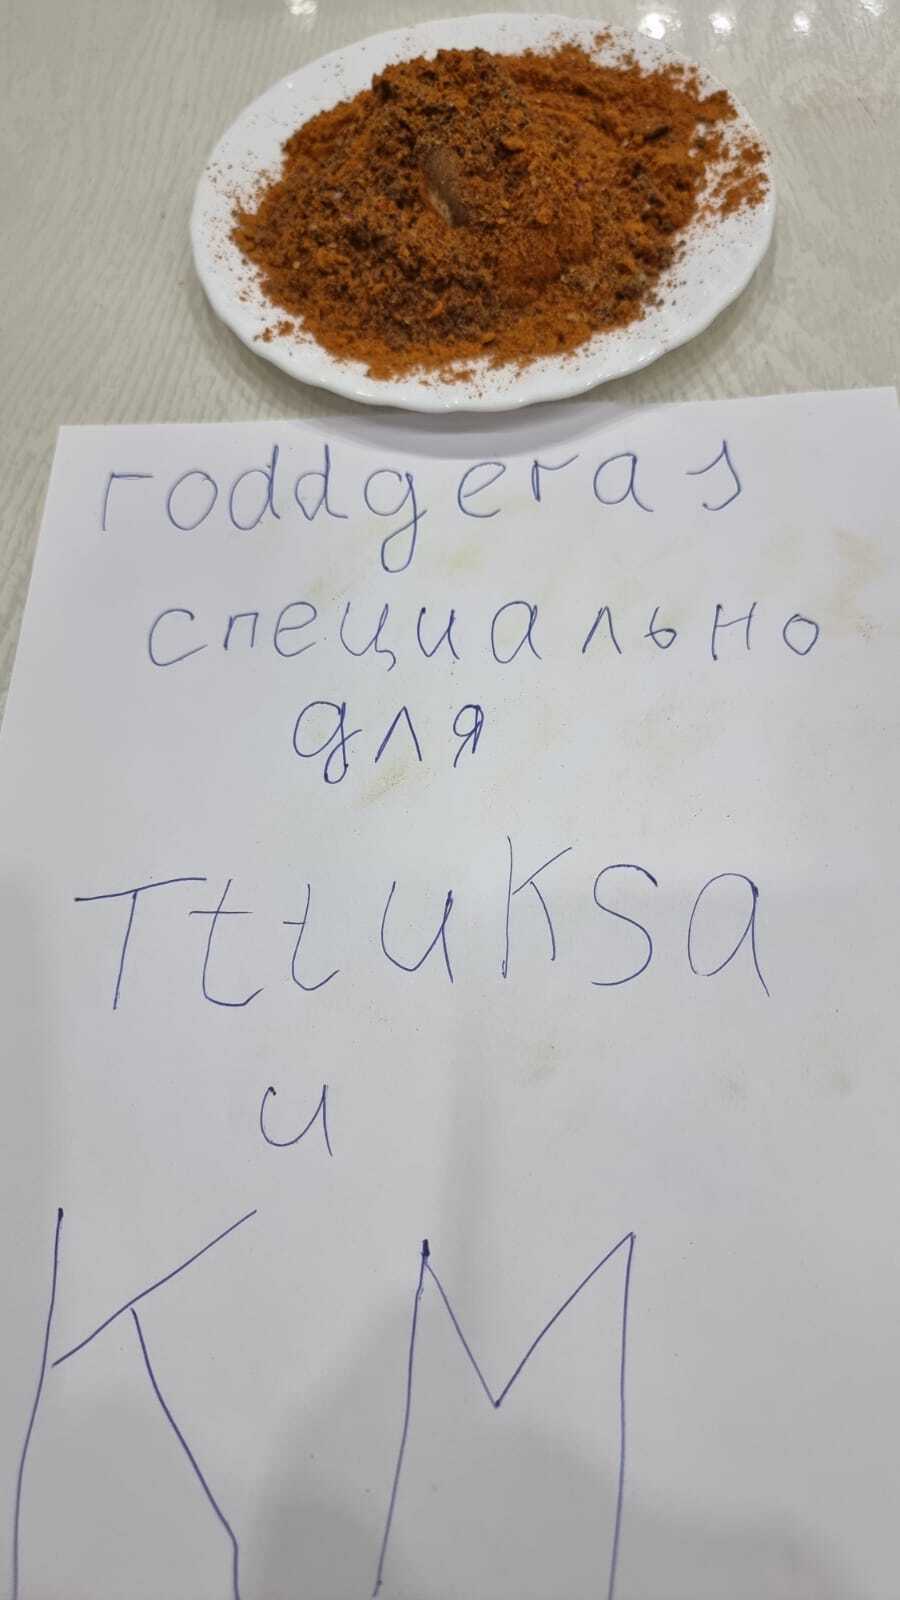 roddgeras
специально
для
Tttuksa
и
КМ